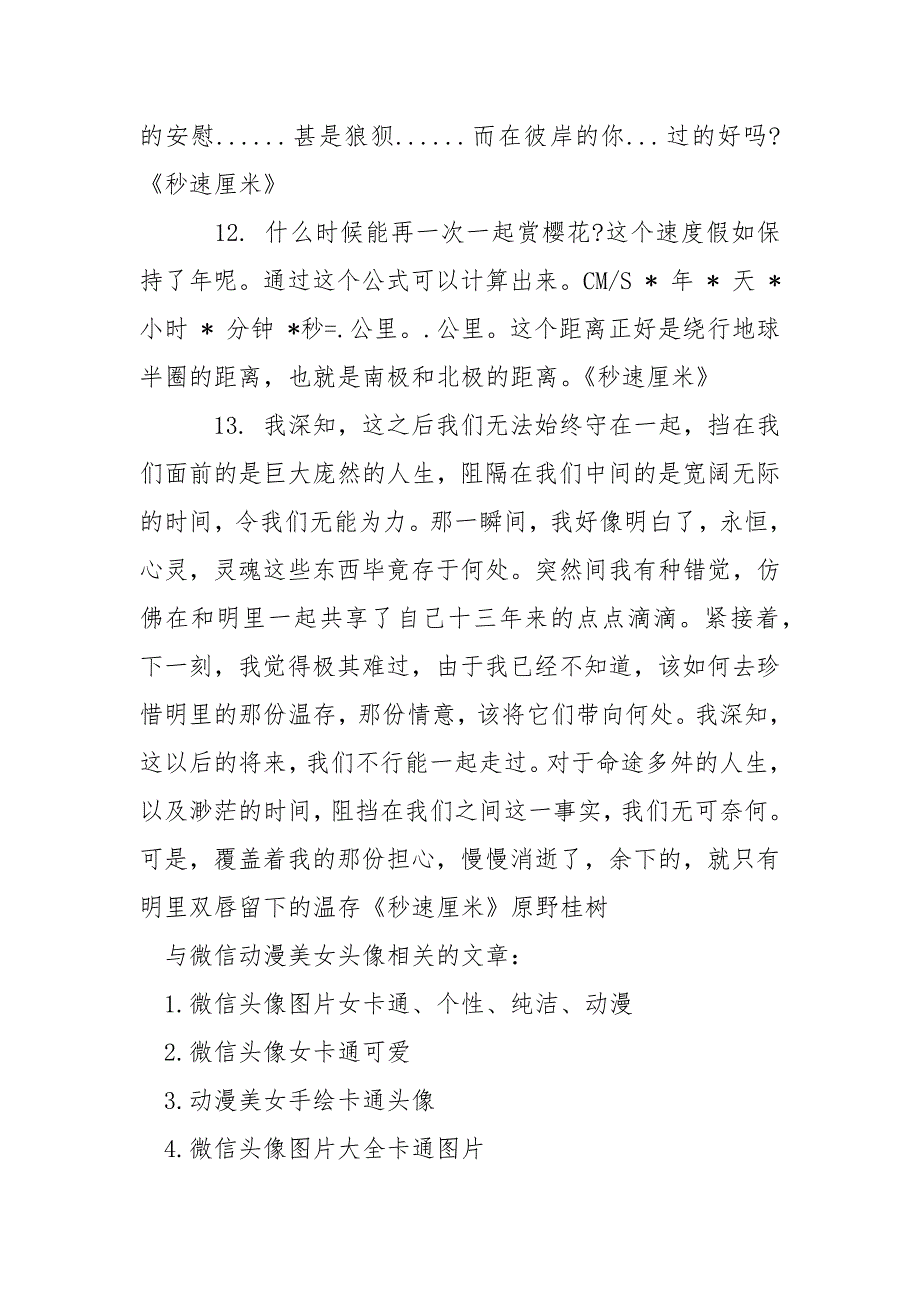 的安慰......甚是狼狈......而在彼岸的你...过的好吗?
《秒速厘米》
12. 什么时候能再一次一起赏樱花?这个速度假如保
持了年呢。通过这个公式可以计算出来。CM/S * 年 * 天 *
小时 * 分钟 *秒=.公里。.公里。这个距离正好是绕行地球
半圈的距离，也就是南极和北极的距离。《秒速厘米》
13. 我深知，这之后我们无法始终守在一起，挡在我
们面前的是巨大庞然的人生，阻隔在我们中间的是宽阔无际
的时间，令我们无能为力。那一瞬间，我好像明白了，永恒，
心灵，灵魂这些东西毕竟存于何处。突然间我有种错觉，仿
佛在和明里一起共享了自己十三年来的点点滴滴。紧接着，
下一刻，我觉得极其难过，由于我已经不知道，该如何去珍
惜明里的那份温存，那份情意，该将它们带向何处。我深知，
这以后的将来，我们不行能一起走过。对于命途多舛的人生，
以及渺茫的时间，阻挡在我们之间这一事实，我们无可奈何。
可是，覆盖着我的那份担心，慢慢消逝了，余下的，就只有
明里双唇留下的温存《秒速厘米》原野桂树
与微信动漫美女头像相关的文章：
1.微信头像图片女卡通、个性、纯洁、动漫
2.微信头像女卡通可爱
3.动漫美女手绘卡通头像
4.微信头像图片大全卡通图片